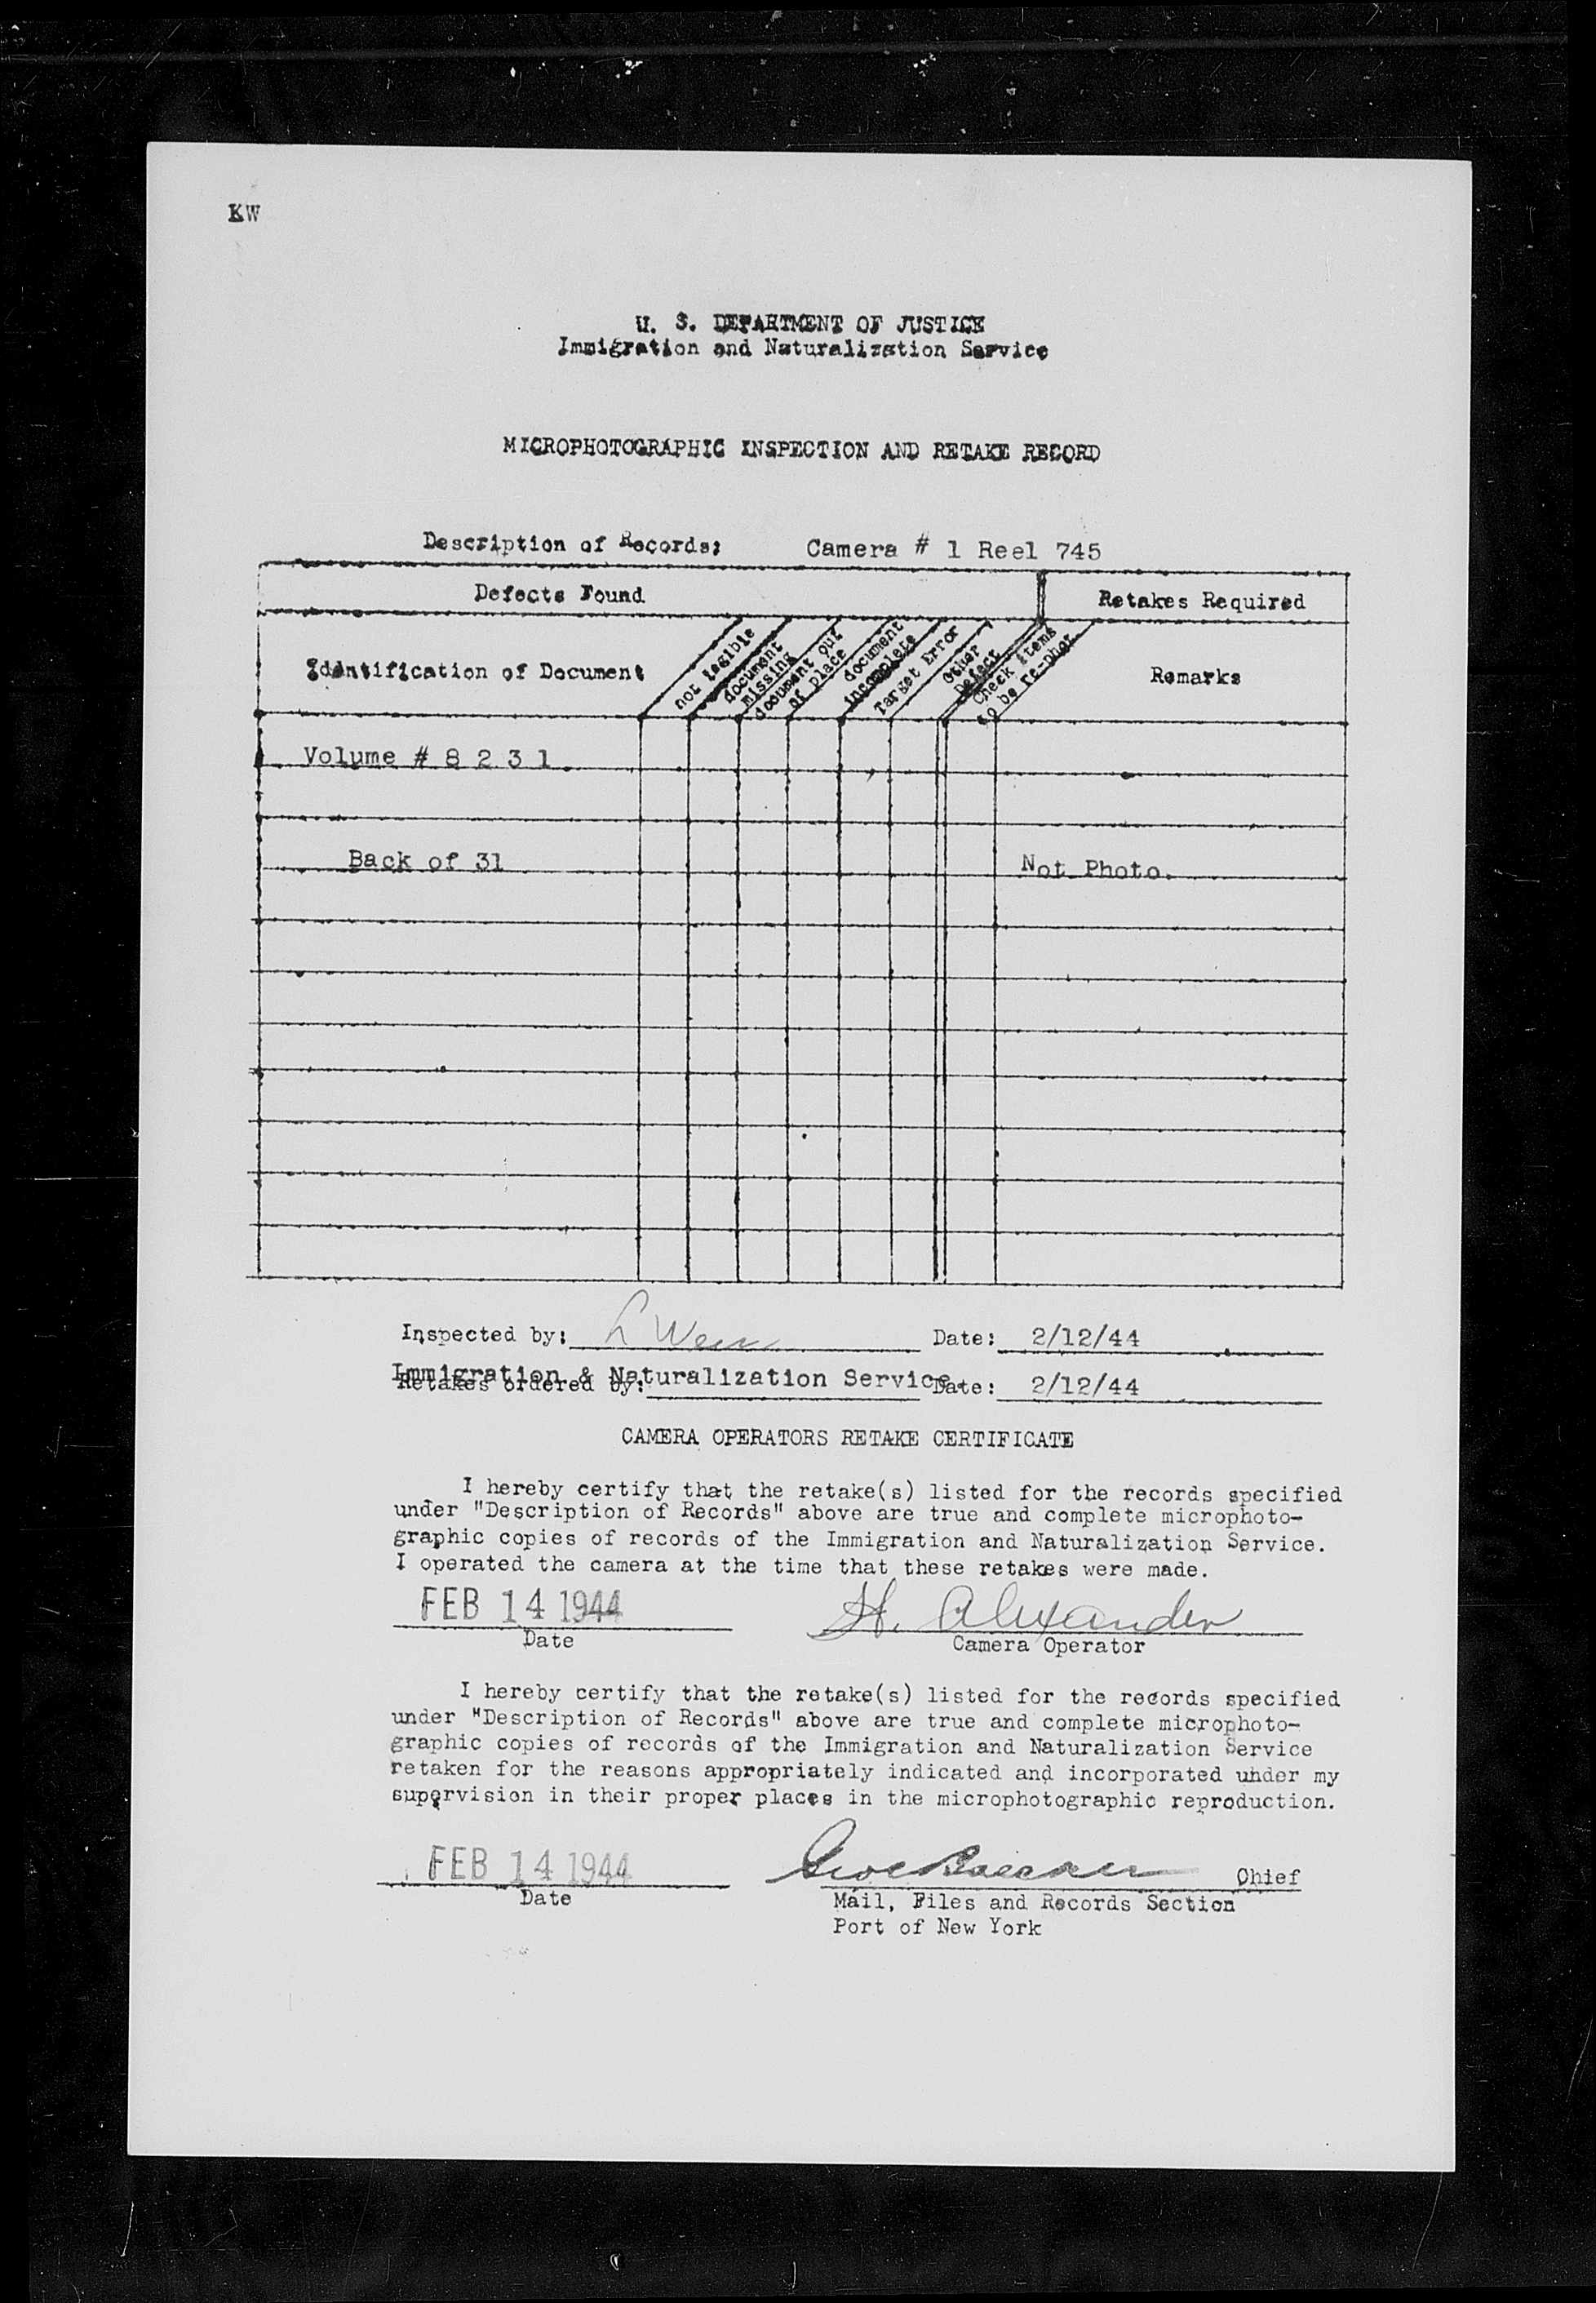 KW
U. S. DEPARTMENT OF JUSTICE
Immigration and Naturalization Service
MICROPHOTOGRAPHIC INSPECTION AND RETAKE RECORD
Description of Records: Camera # 1 Reel 745
Defects Found Retakes Required
Identification of Document
not legible
document
missing
document out
of place
document
incomplete
Target Error
Other
Defect
Check items
to be re-phot
Remarks
Volume # 8 2 3 1
Back of 31 Not Photo.
Inspected by: L Date: 2/12/44
Immigration & Naturalization Service
Retakes ordered by: Date: 2/12/44
CAMERA OPERATORS RETAKE CERTIFICATE
I hereby certify that the retake(s) listed for the records specified
under "Description of Records" above are true and complete microphoto-
graphic copies of records of the Immigration and Naturalization Service.
I operated the camera at the time that these retakes were made.
FEB 14 1944 H. Alexander
Date Camera Operator
I hereby certify that the retake(s) listed for the records specified
under "Description of Records" above are true and complete microphoto-
graphic copies of records of the Immigration and Naturalization Service
retaken for the reasons appropriately indicated and incorporated under my
supervision in their proper places in the microphotographic reproduction.
FEB 14 1944 Chief
Date Mail, Files and Records Section
Port of New York